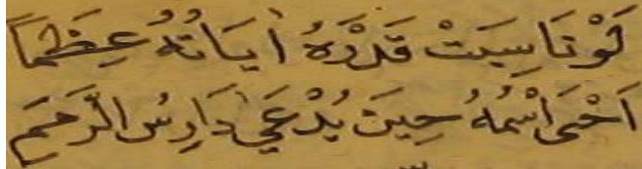 لَوْنَاسِبَتْ قَدْرَهُ اٰيَاتُهُ عِظَمًا
اَحْيَ اسْمُهُ حِينَ يُدْعَي دَارِسُ الرِّمَمِ